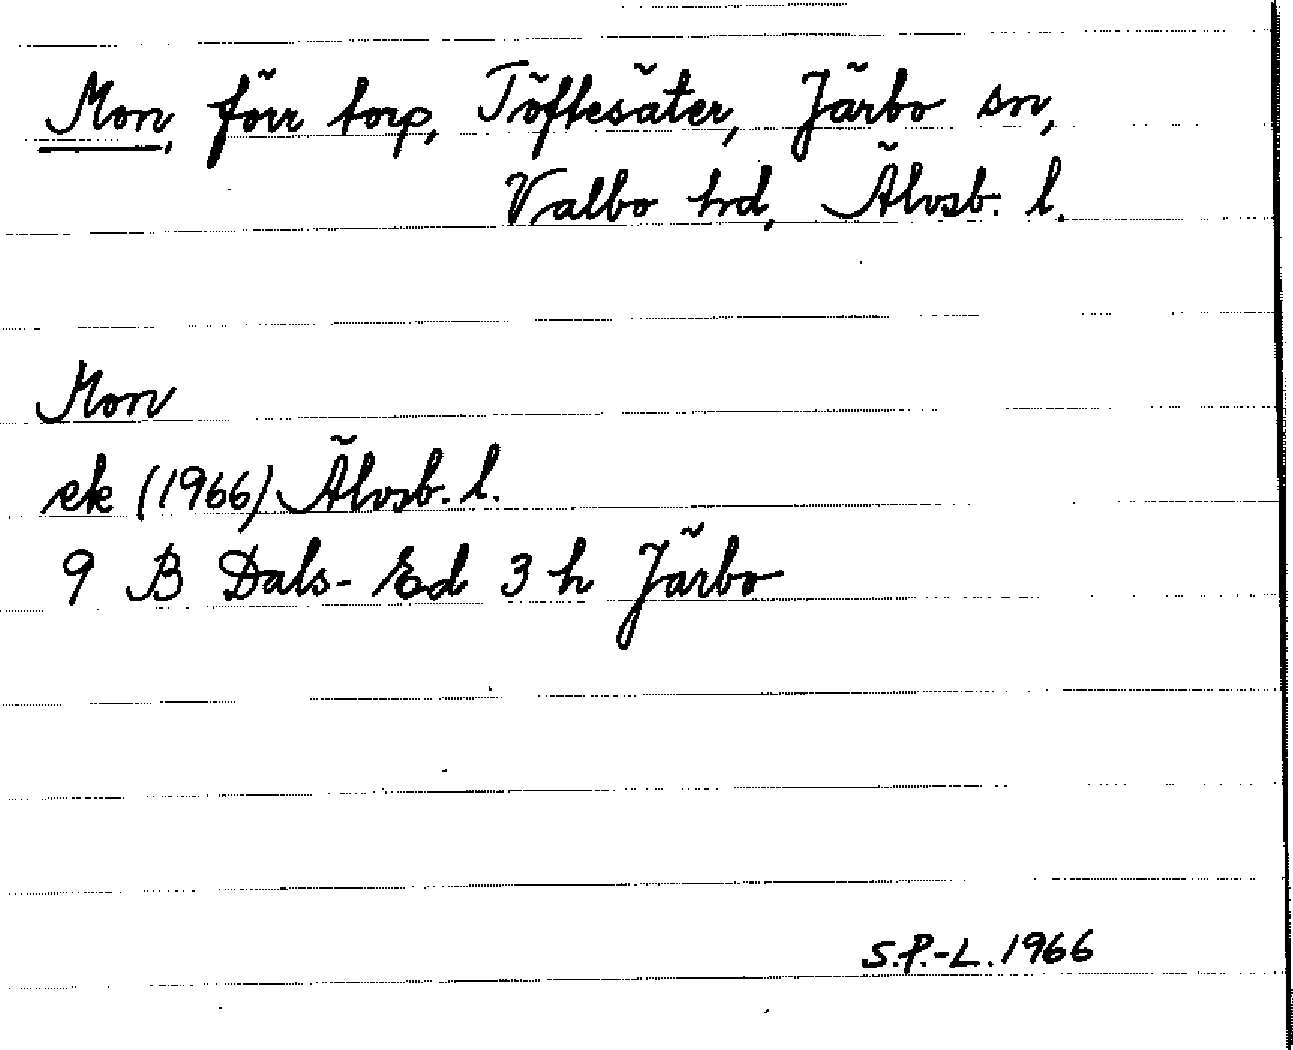 Mon, förr torp, Töftesäter, Järbo sn,
Valbo hd, Älvsb. l.
Mon
ek (1966) Älvsb. l.
9 B Dals-Ed 3 h Järbo
S.P.-L. 1966